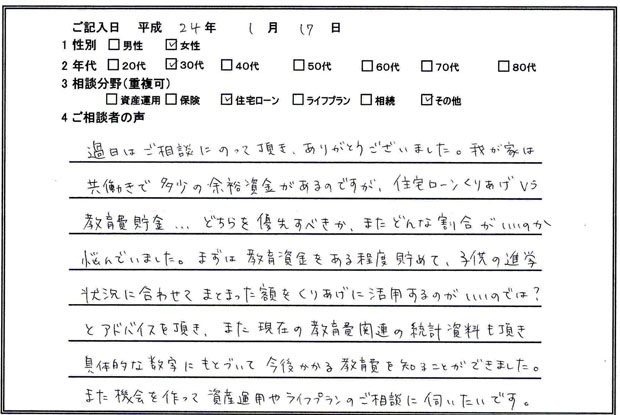 ご記入日 平成 24年 1月 17日
1 性別 □男性 ☑女性
2 年代 □20代 ☑30代 □40代 □50代 □60代 □70代 □80代
3 相談分野(重複可)
□資産運用 □保険 ☑住宅ローン □ライフプラン □相続 ☑その他
4 ご相談者の声
過日はご相談にのって頂き、ありがとうございました。我が家は
共働きで多少の余裕資金があるのですが、住宅ローンくりあげVS
教育費貯金...どちらを優先すべきか、またどんな割合がいいのか
悩んでいました。まずは教育資金をある程度貯めて、子供の進学
状況に合わせてまとまった額をくりあげに活用するのがいいのでは?
とアドバイスを頂き、また現在の教育費関連の統計資料も頂き
具体的な数字にもとづいて今後かかる教育費を知ることができました。
また機会を作って資産運用やライフプランのご相談に伺いたいです。